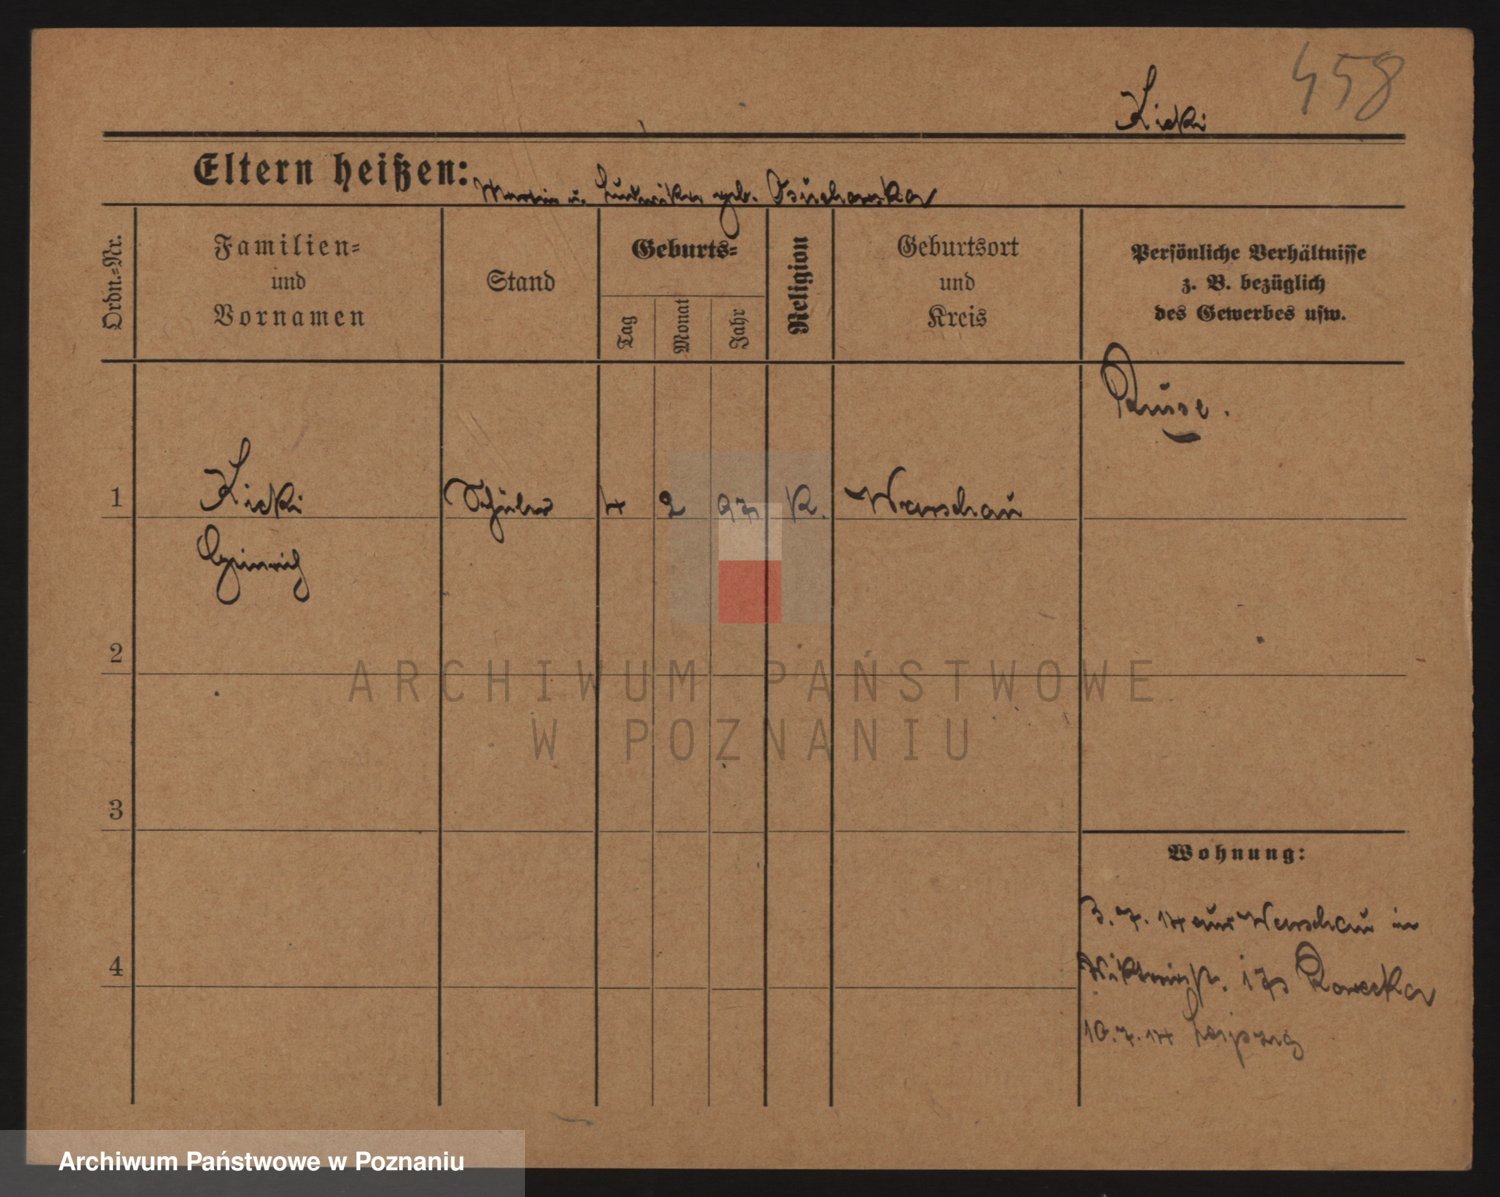 458
Kicki
Eltern heißen: Martin u. Ludwika geb.
Ordn.-Nr.
Familien-
und
Vornamen
Stand
Geburts-
Tag
Monat
Jahr
Religion
Geburtsort
und
Kreis
Persönliche Verhältnisse
z. B. bezüglich
des Gewerbes usw.
Russe.
1 Kicki Schüler 4 2 97 K. Warschau
Heinrich
2
3
4
Wohnung:
3. 7. 14 aus Warschau in
10. 7. 14 Leipzig
ARCHIWUM PAŃSTWOWE
W POZNANIU
Archiwum Państwowe w Poznaniu